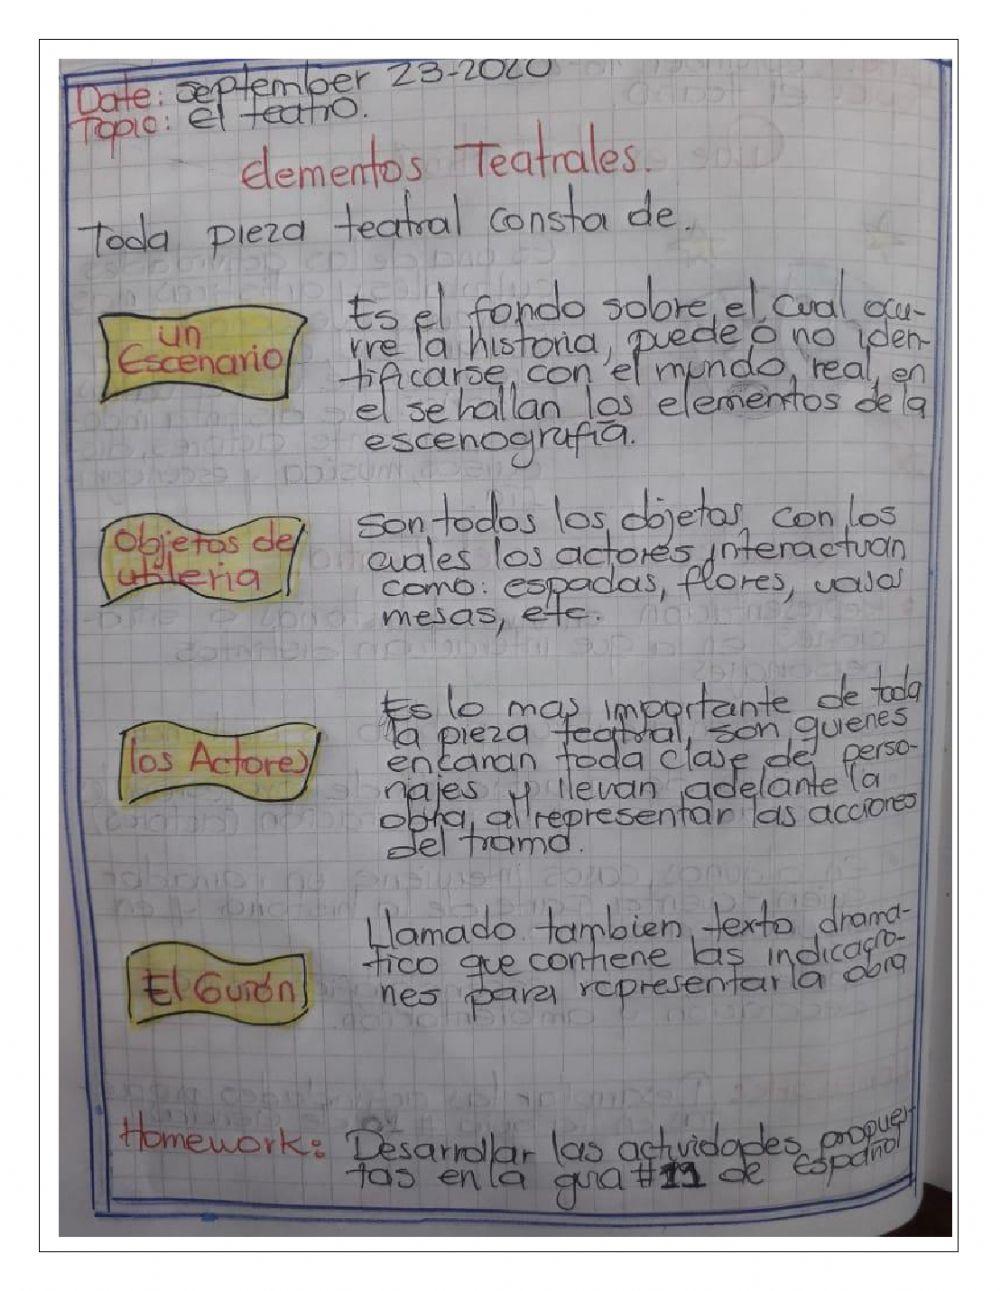 Date: september 23-2020
Topic: el teatro.
elementos Teatrales.
Toda pieza teatral consta de.
un
Escenario
Es el fondo sobre el cual ocu-
rre la historia, puede o no iden-
tificarse con el mundo real, en
el se hallan los elementos de la
escenografía.
Objetos de
utileria
son todos los objetos con los
cuales los actores interactuan
como: espadas, flores, vasos
mesas, etc.
los Actores
Es lo mas importante de toda
la pieza teatral, son quienes
encaran toda clase de perso-
najes y llevan adelante la
obra, al representar las acciones
del trama.
El Guión
Llamado tambien texto drama-
tico que contiene las indicacio-
nes para representar la obra
Homework: Desarrollar las actividades propues-
tas en la guia #11 de Español